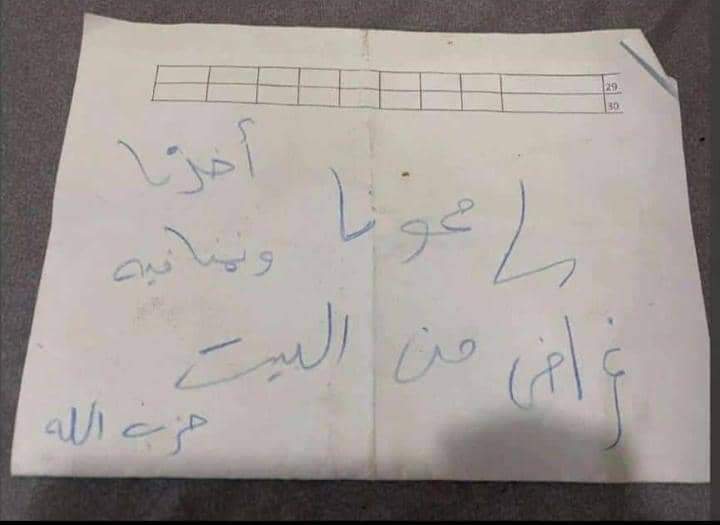 29
30
سامحونا أخذنا
ونمنا فيه
غراض من البيت
حزب الله